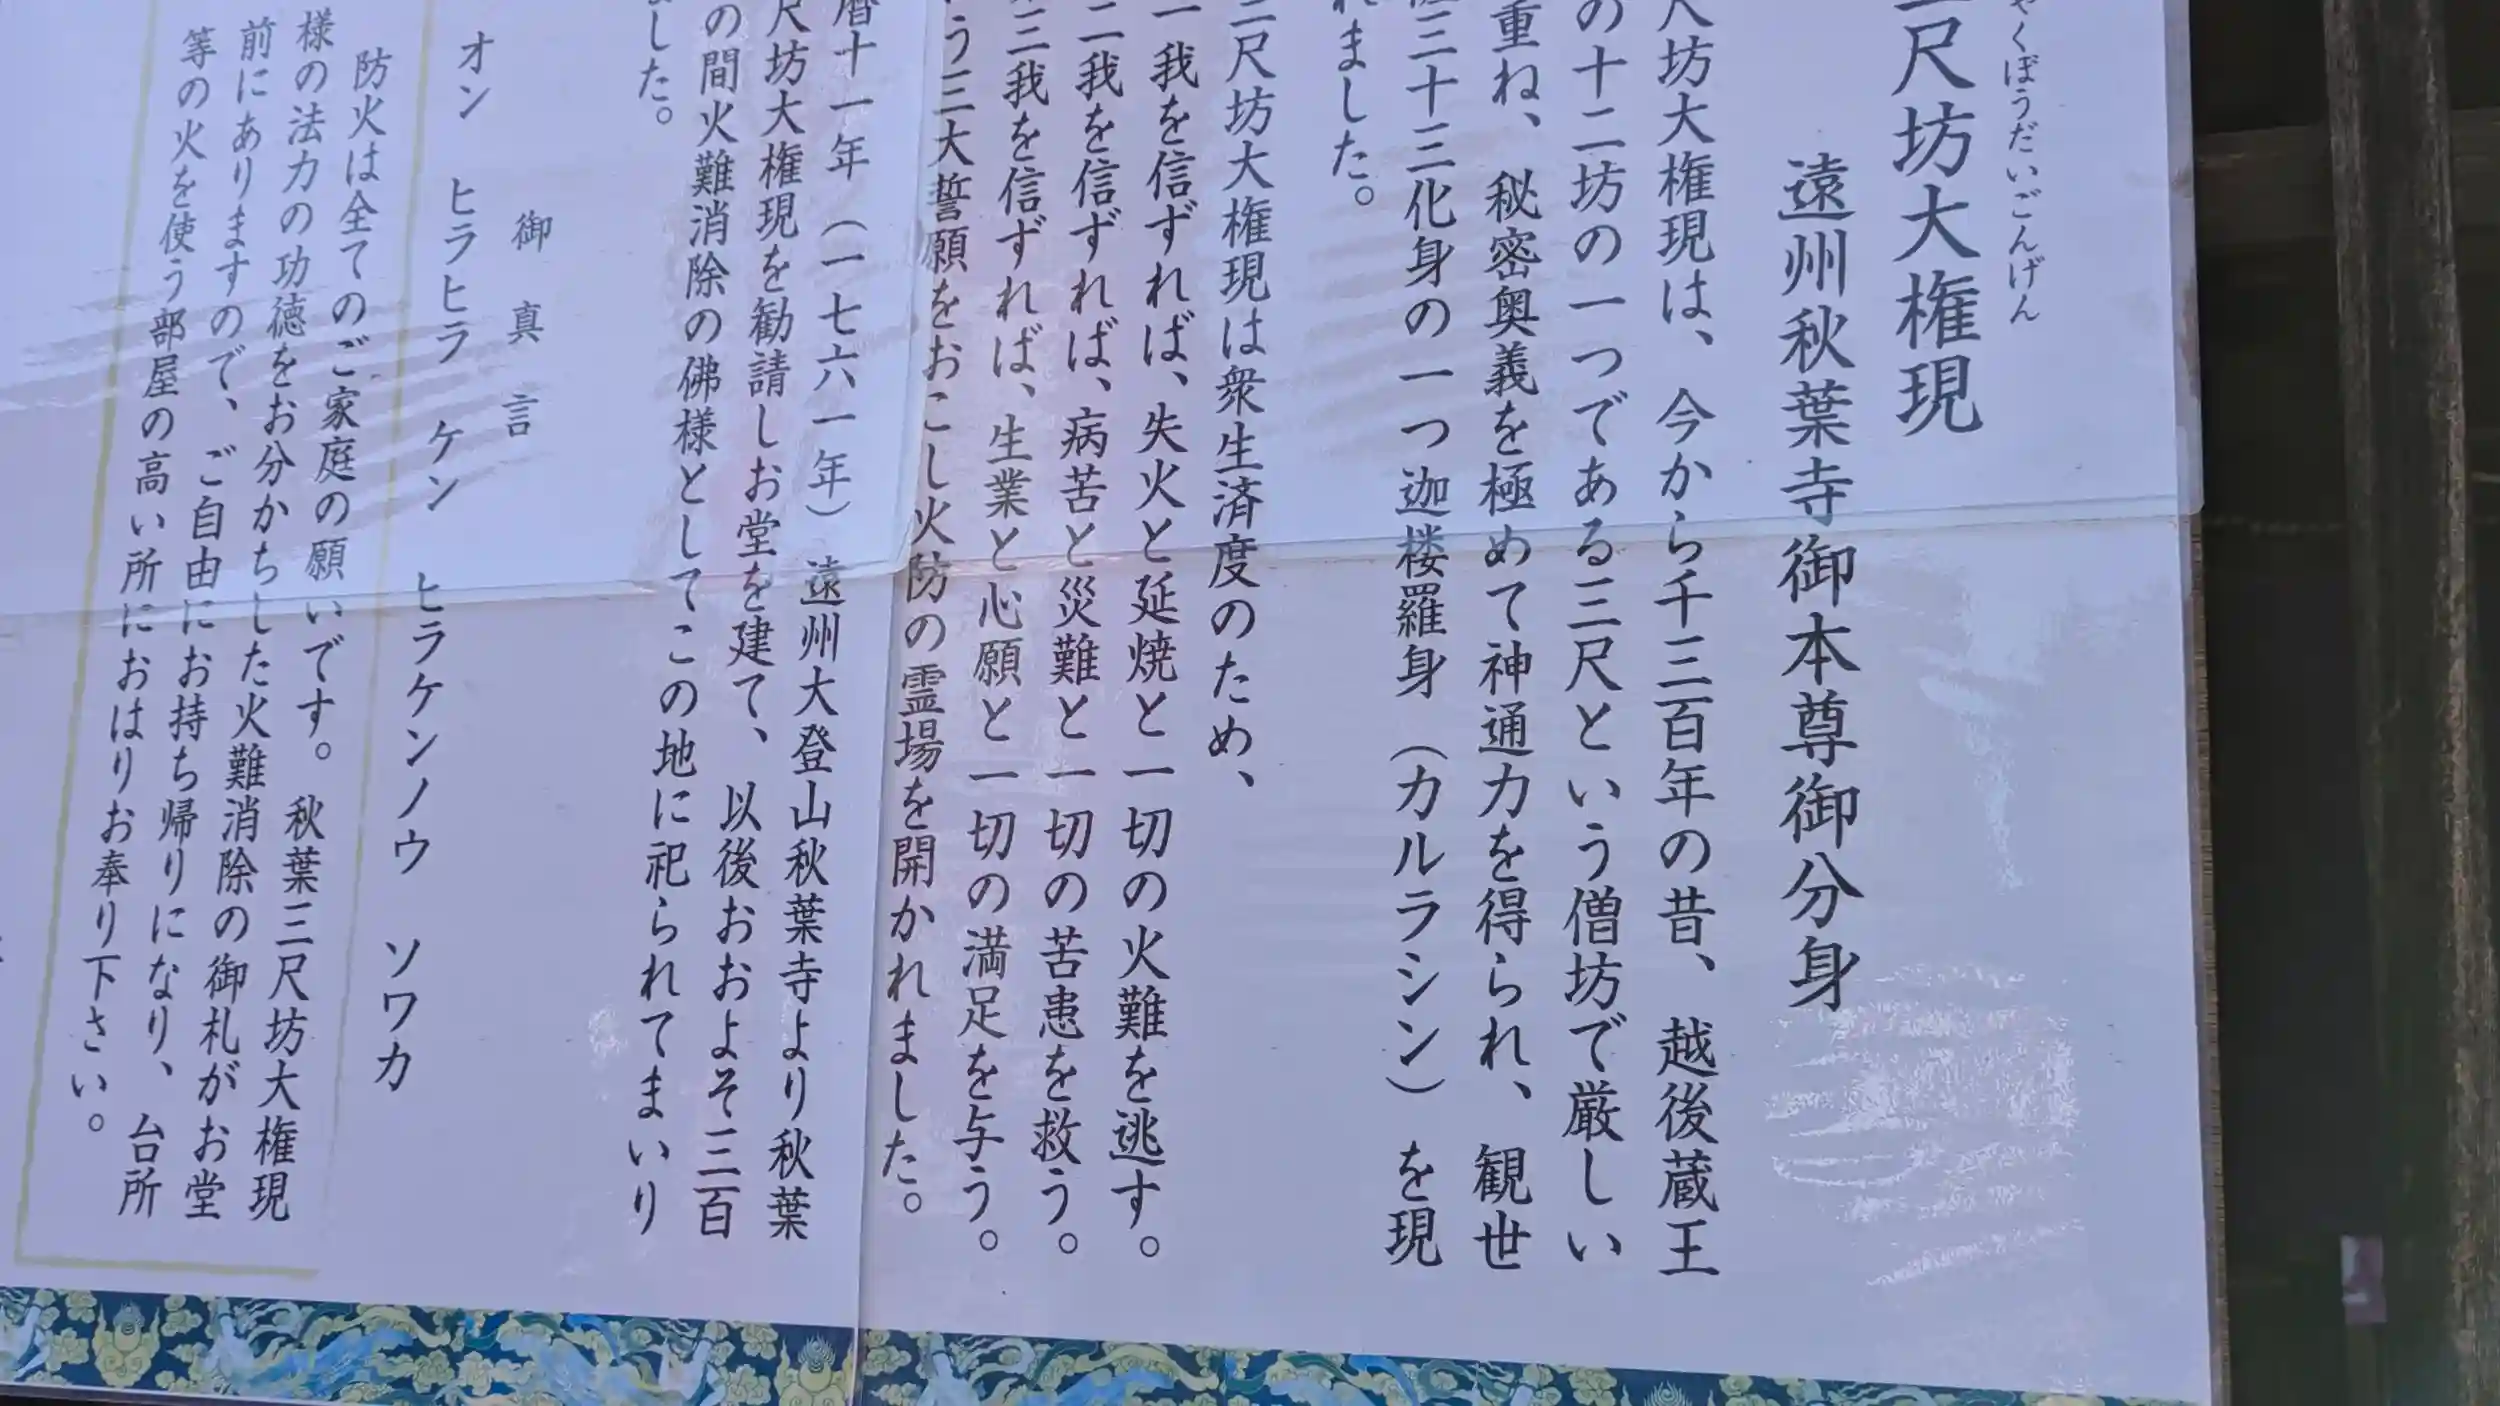 ゃくぼうだいごんげん
三尺坊大権現
遠州秋葉寺御本尊御分身
尺坊大権現は、今から千三百年の昔、越後蔵王
の十二坊の一つである三尺という僧坊で厳しい
重ね、秘密奥義を極めて神通力を得られ、観世
三十三化身の一つ迦楼羅身（カルラシン）を現
れました。
三尺坊大権現は衆生済度のため、
一我を信ずれば、失火と延焼と一切の火難を逃す。
二我を信ずれば、病苦と災難と一切の苦患を救う。
三我を信ずれば、生業と心願と一切の満足を与う。
う三大誓願をおこし火防の霊場を開かれました。
暦十一年（一七六一年）遠州大登山秋葉寺より秋葉
尺坊大権現を勧請しお堂を建て、以後おおよそ三百
の間火難消除の佛様としてこの地に祀られてまいり
ました。
御真言
オン ヒラヒラ ケン ヒラケンノウ ソワカ
防火は全てのご家庭の願いです。秋葉三尺坊大権現
様の法力の功徳をお分かちした火難消除の御札がお堂
前にありますので、ご自由にお持ち帰りになり、台所
等の火を使う部屋の高い所におはりお奉り下さい。